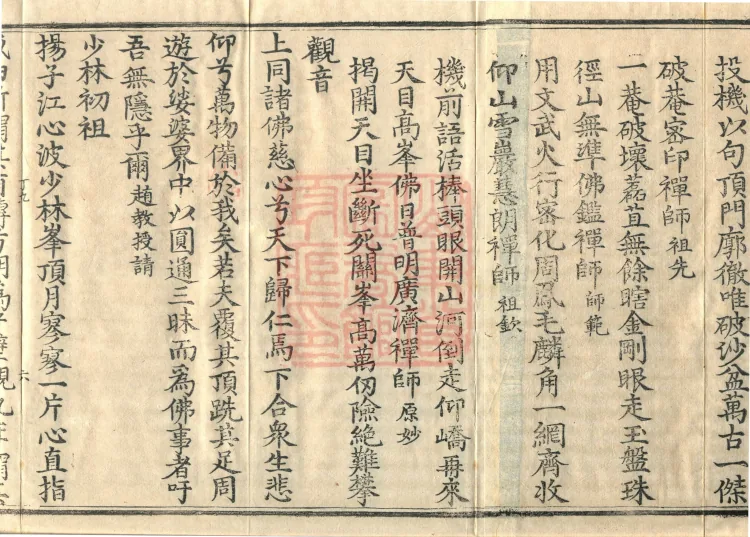 投機以句頂門廓徹唯破沙盆萬古一傑
破菴密印禪師祖先
一菴破壞藞苴無餘瞎金剛眼走玉盤珠
徑山無準佛鑑禪師師範
用文武火行密化周鳳毛麟角一網齊收
仰山雪巖慧朗禪師祖欽
機前語活棒頭眼開山河倒走仰嶠再來
天目高峯佛日普明廣濟禪師原妙
揭開天目坐斷死關峯高萬仞險絕難攀
觀音
上同諸佛慈心兮天下歸仁焉下合衆生悲
仰兮萬物備於我矣若夫覆其頂跣其足周
遊於娑婆界中以圓通三昧而為佛事者吁
吾無隱乎爾趙教授請
少林初祖
揚子江心波少林峯頂月寥寥一片心直指
丁九
六